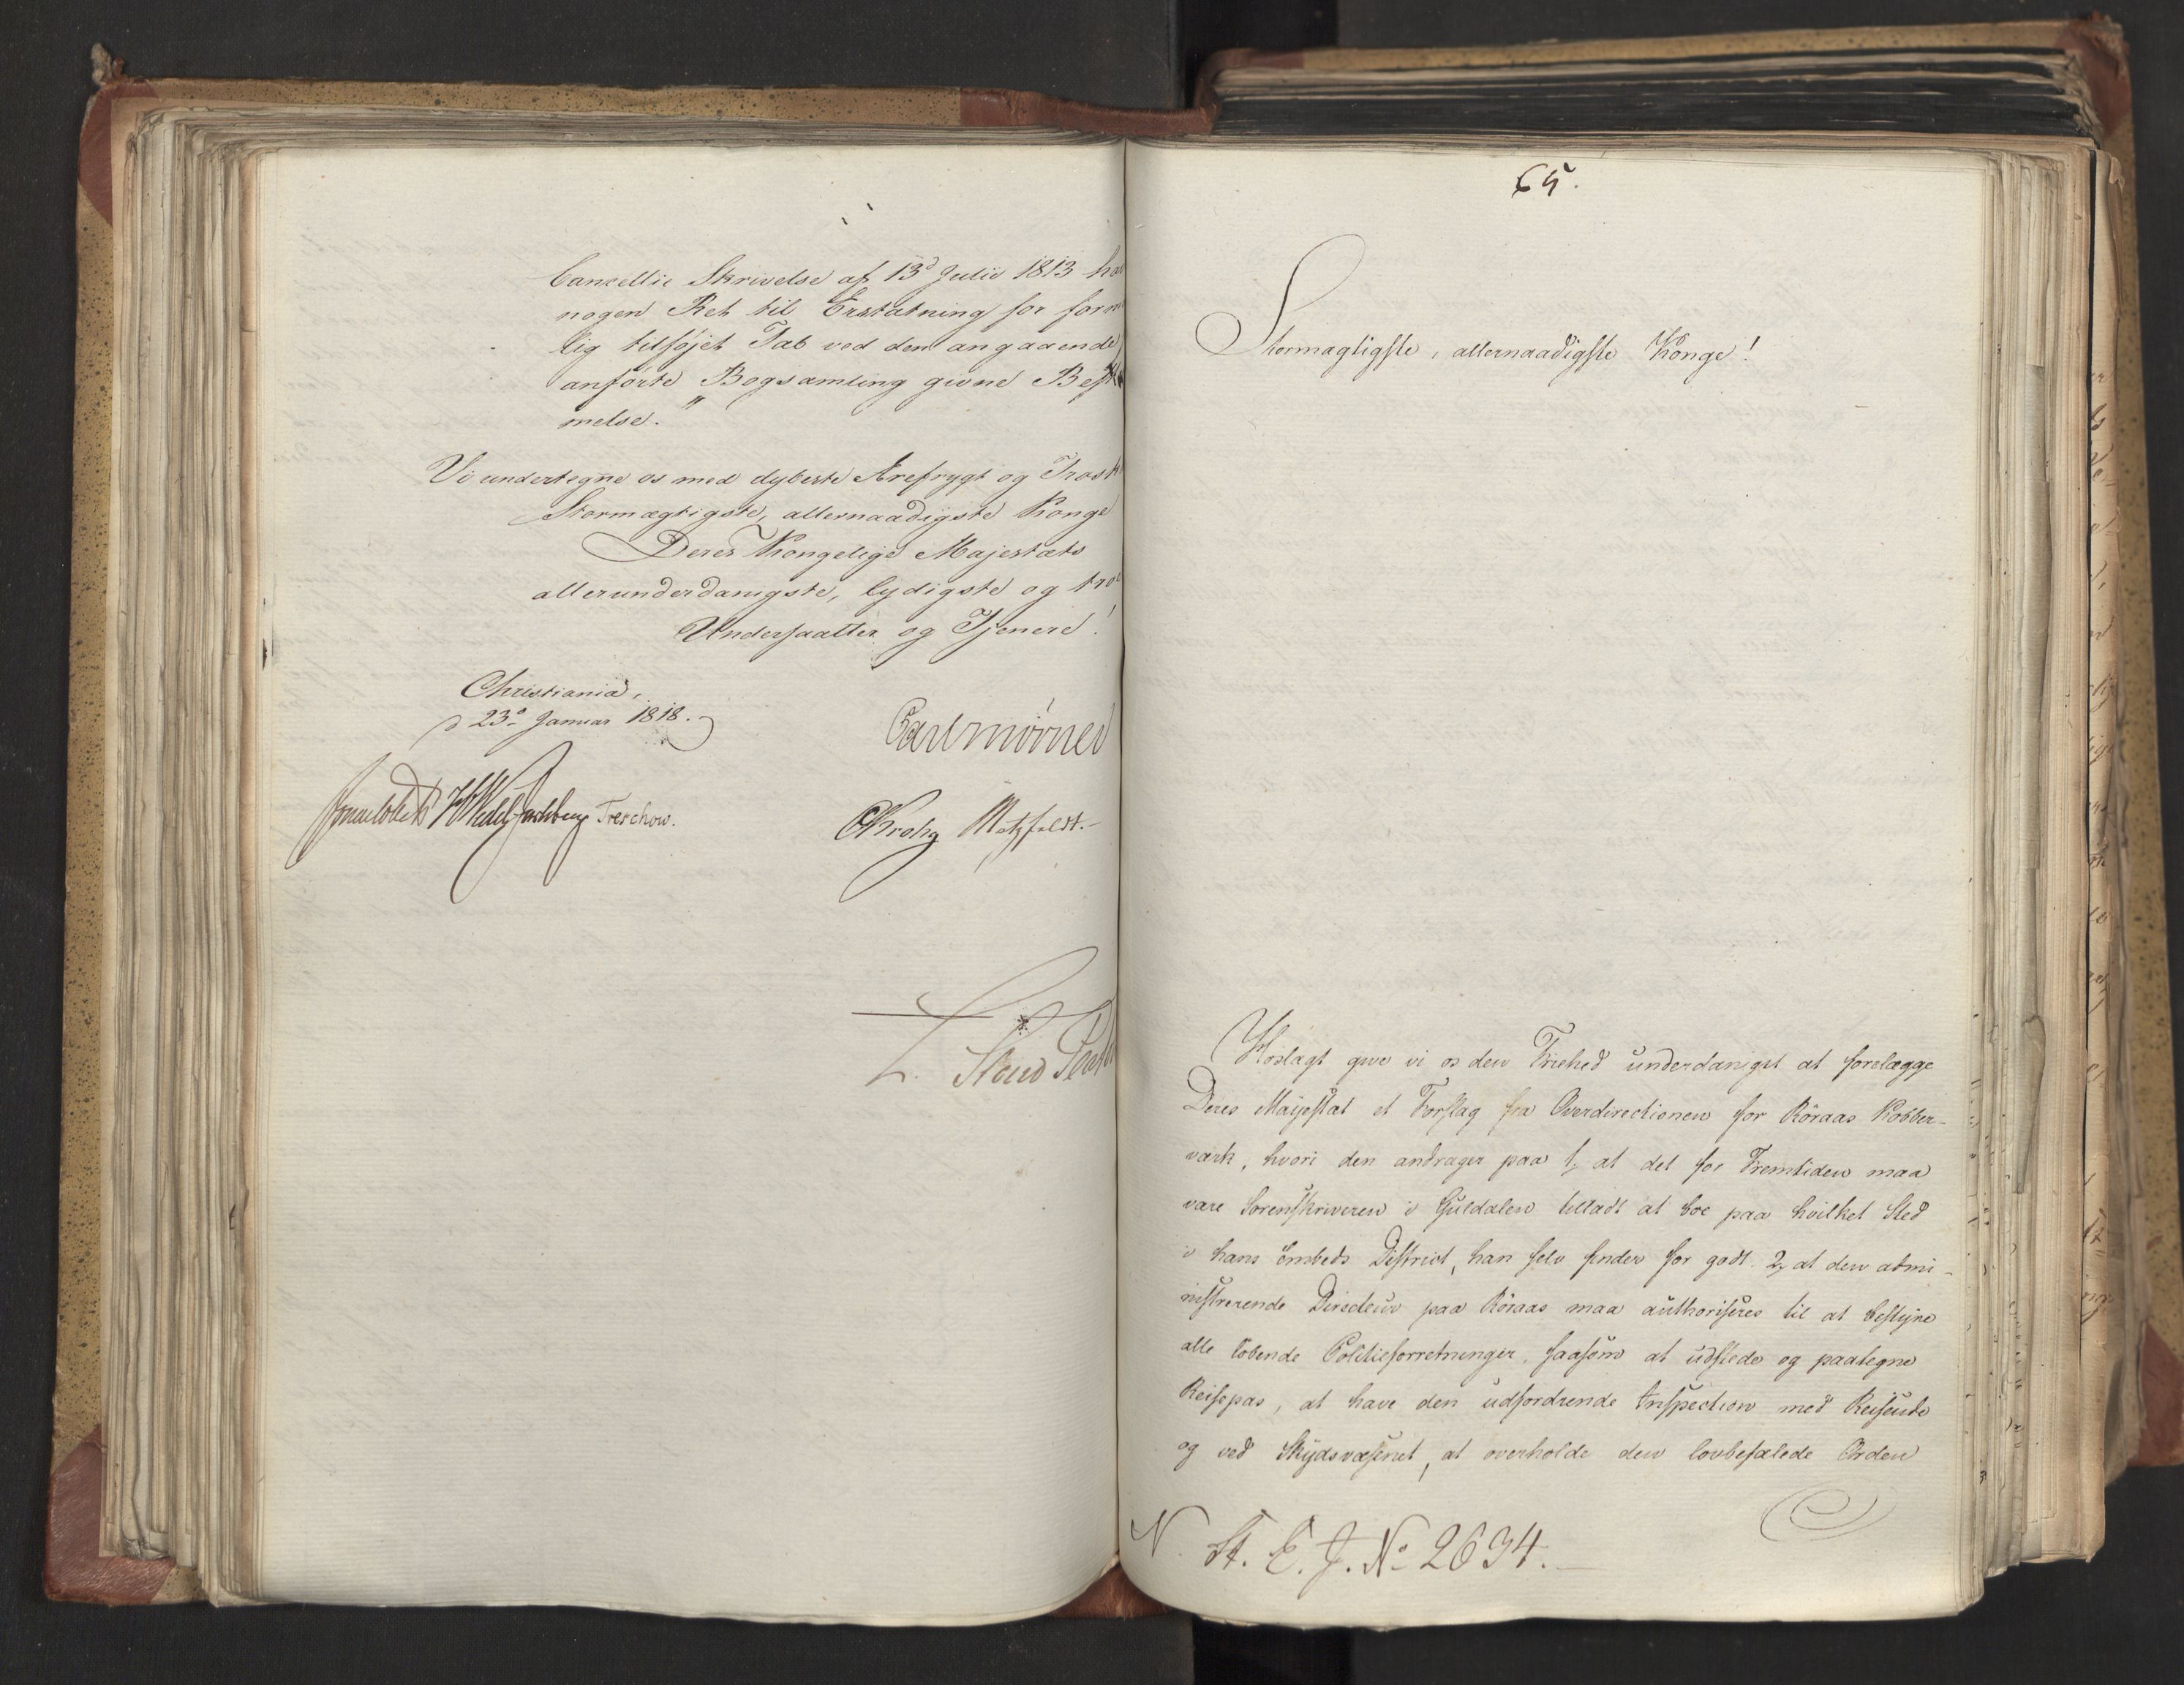 Cancellie Skrivelse af 13d Julii 1813 ha
nogen Ret til Erstatning for form
lig tilføjet Tab ved den angaaende
anførte Bogsamling givne Beste
melse."
Vi undertegne os med dybeste Ærefrygt og Trosk
Stormægtigste, allernaadigste Konge
Deres Kongelige Majestæts
allerunderdanigste, lydigste og tro
Undersaatter og Tjenere!
Christiania,
d 23d Januar 1818.
Carl Mörner
Sommerhielm HWedel Jarlsberg Treschow.
CKrohg Motzfeldt.
65.
Stormægtigste, allernaadigste Konge!
Hoslagt give vi os den Friehed underdanigst at forelægge
Deres Majestæt et Forslag fra Overdirectionen for Röraas Kobber-
værk, hvori den andrager paa 1, at det for Fremtiden maa
være Sorenskriveren i Guldalen tilladt at boe paa hvilket Sted
i hans Embeds District, han selv finder for godt. 2, at den admi-
nistrerende Directeur paa Röraas maa authoriseres til at bestyre
alle löbende Politieforretninger, saasom at udstede og paategne
Reisepas, at have den udfordrende Inspection med Reisende
og ved Skydsvæsenet, at overholde den lovbefalede Orden
N. St. E. J. No 2634.